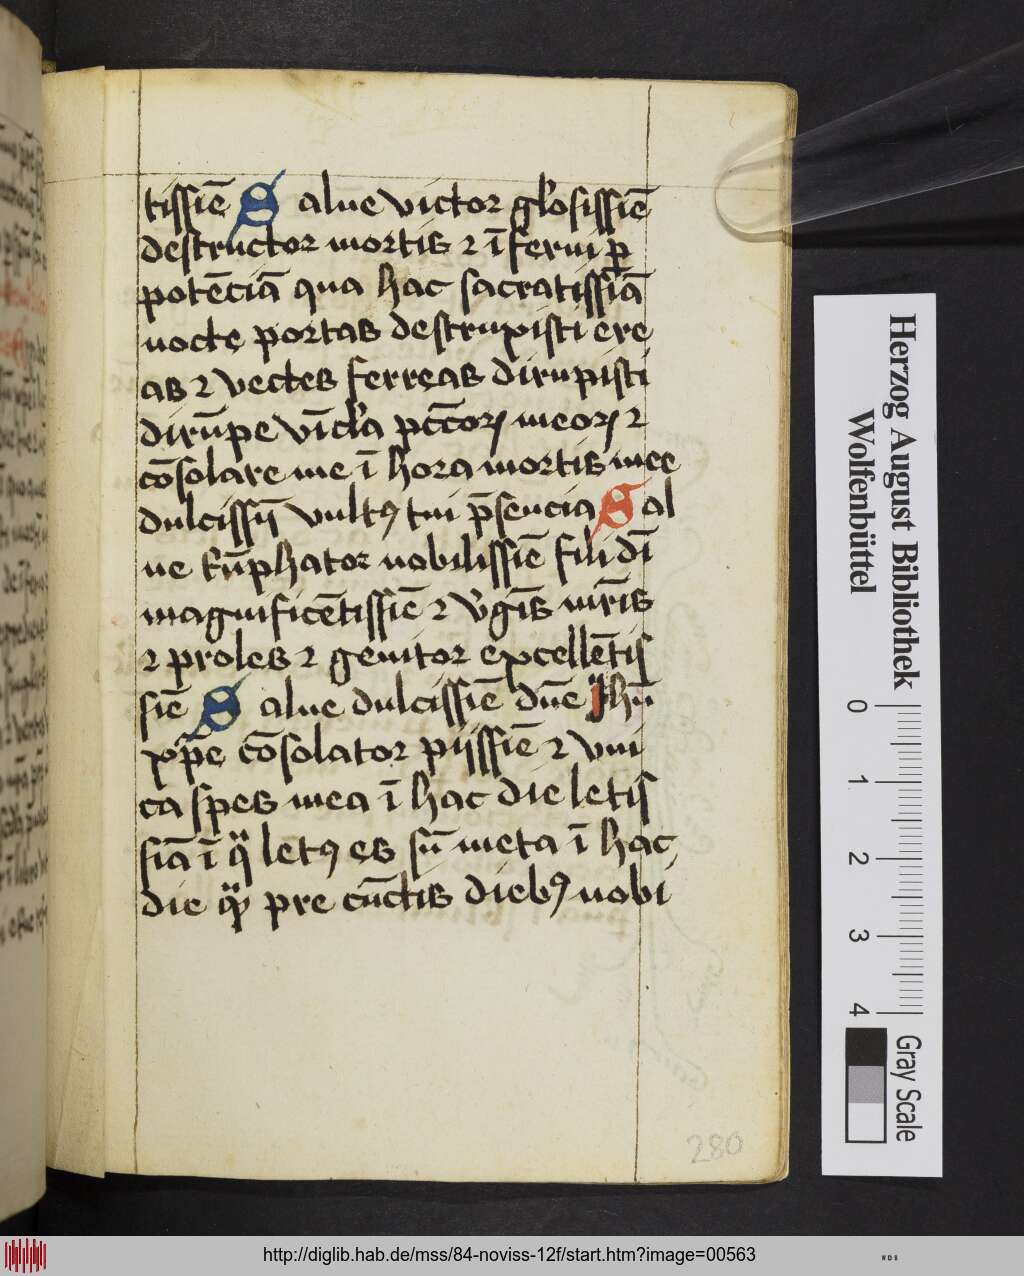 tissiē Salue victor gl'osissiē
destructor mortis ⁊ īferni ꝑ
potēciā qua hac sacratissiā
nocte portas destruxisti ere
as ⁊ vectes ferreas dirupisti
dirūpe vīcl'a pctōꝝ meoꝝ ⁊
cōsolare me ī hora mortis mee
dulcissij vultꝰ tui p̄sencia Sal
ue t'ūphator nobilissiē fili dī
magnificētissiē ⁊ v'gīs mr̄is
⁊ proles ⁊ genitor excellētis
siē Salue dulcissiē dn̄e Jhū
xp̄e cōsolator pijssiē ⁊ vni
ca spes mea ī hac die letis
siā ī q̈ letꝰ es sū meta ī hac
die q̈ꝫ pre cūctis diebꝰ nobi
280
Herzog August Bibliothek
Wolfenbüttel
0 1 2 3 4
Gray Scale
http://diglib.hab.de/mss/84-noviss-12f/start.htm?image=00563